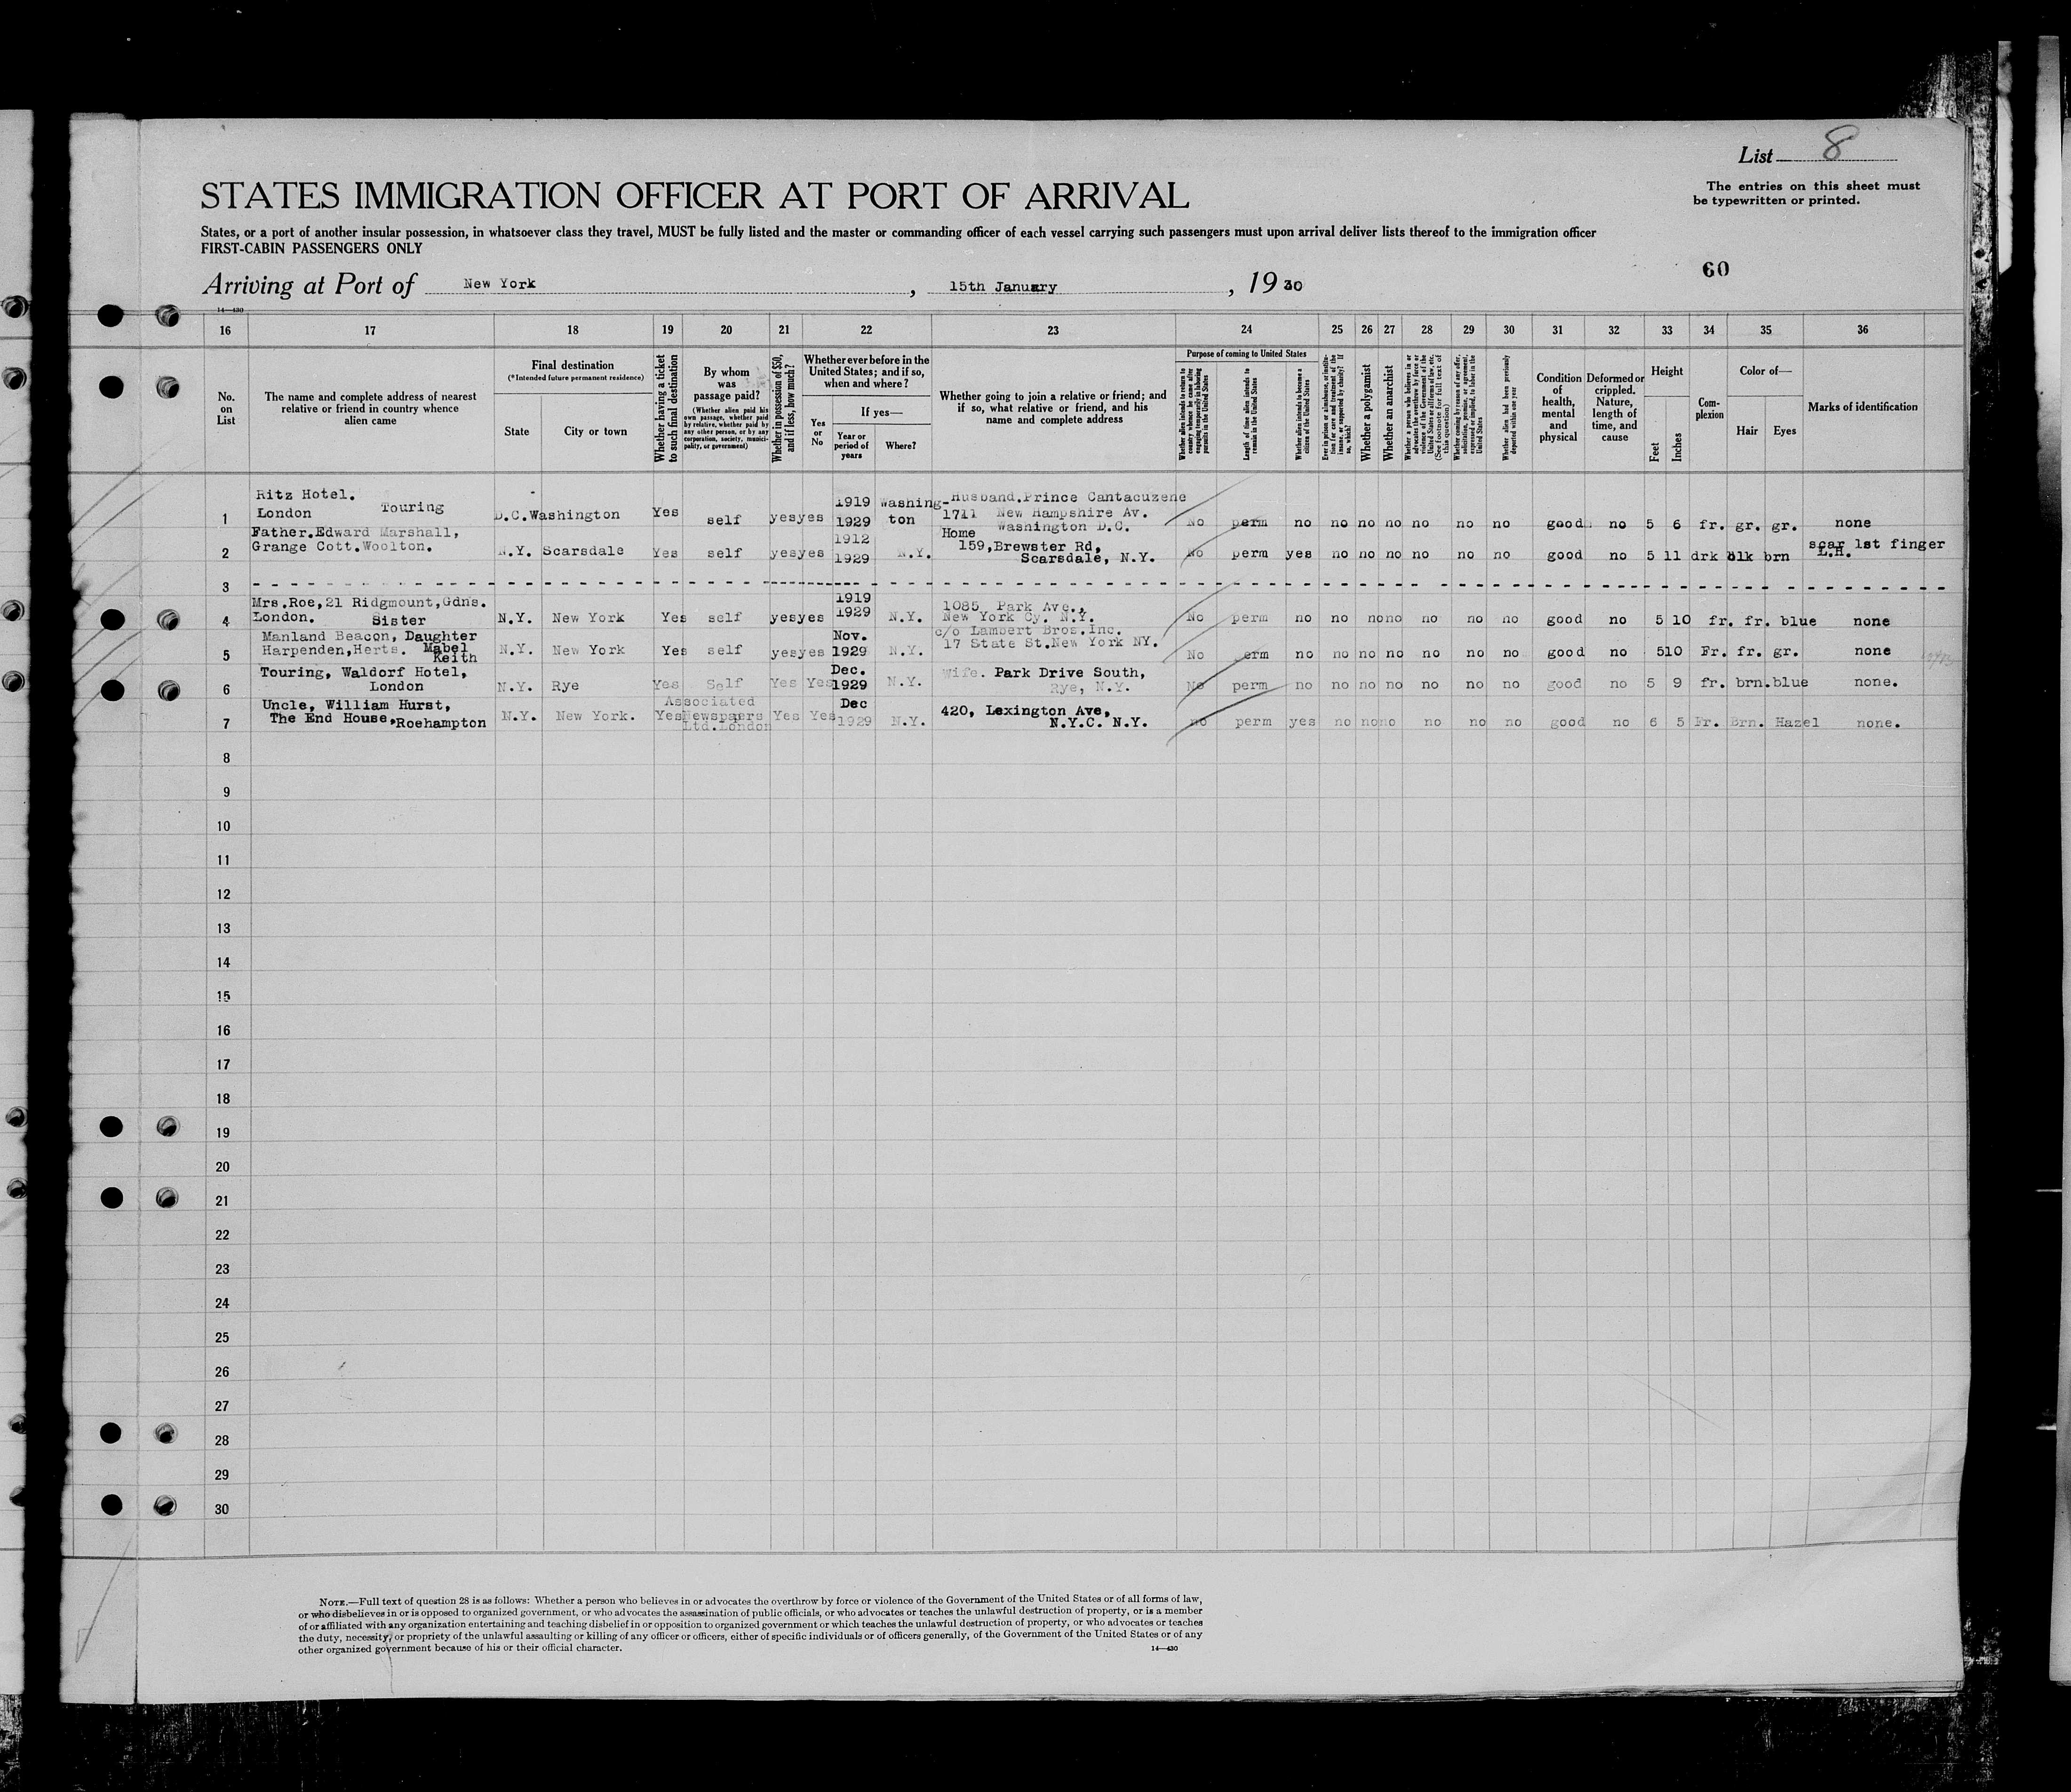 List 8
STATES IMMIGRATION OFFICER AT PORT OF ARRIVAL
The entries on this sheet must
be typewritten or printed.
States, or a port of another insular possession, in whatsoever class they travel, MUST be fully listed and the master or commanding officer of each vessel carrying such passengers must upon arrival deliver lists thereof to the immigration officer
FIRST-CABIN PASSENGERS ONLY
60
Arriving at Port of New York, 15th January, 1930
14—430
16 17 18 19 20 21 22 23 24 25 26 27 28 29 30 31 32 33 34 35 36
No. on List
The name and complete address of nearest relative or friend in country whence alien came
Final destination
(*Intended future permanent residence)
State
City or town
Whether having a ticket to such final destination
By whom was passage paid?
(Whether alien paid his own passage, whether paid by relative, whether paid by any other person, or by any corporation, society, municipality, or government)
Whether in possession of $50, and if less, how much?
Whether ever before in the United States; and if so, when and where?
Yes or No
If yes—
Year or period of years
Where?
Whether going to join a relative or friend; and if so, what relative or friend, and his name and complete address
Purpose of coming to United States
Whether alien intends to return to country whence he came after engaging temporarily in laboring pursuits in the United States
Length of time alien intends to remain in the United States
Whether alien intends to become a citizen of the United States
Ever in prison or almshouse, or institution for care and treatment of the insane, or supported by charity? If so, which?
Whether a polygamist
Whether an anarchist
Whether a person who believes in or advocates the overthrow by force or violence of the Government of the United States or all forms of law, etc. (See footnote for full text of this question)
Whether coming by reason of any offer, solicitation, promise, or agreement, expressed or implied, to labor in the United States
Whether alien had been previously deported within one year
Condition of health, mental and physical
Deformed or crippled. Nature, length of time, and cause
Height
Feet
Inches
Complexion
Color of—
Hair
Eyes
Marks of identification
1 Ritz Hotel. London Touring D.C. Washington Yes self yes yes 1919 1929 Washington Husband. Prince Cantacuzene 1711 New Hampshire Av. Washington D.C. No perm no no no no no no no good no 5 6 fr. gr. gr. none
2 Father. Edward Marshall, Grange Cott. Woolton. N.Y. Scarsdale Yes self yes yes 1912 1929 N.Y. Home 159, Brewster Rd, Scarsdale, N.Y. No perm yes no no no no no no good no 5 11 drk blk brn scar 1st finger L.H.
3
4 Mrs. Roe, 21 Ridgmount, Gdns. London. Sister N.Y. New York Yes self yes yes 1919 1929 N.Y. 1085 Park Ave., New York Cy. N.Y. No perm no no no no no no no good no 5 10 fr. fr. blue none
5 Manland Beacon, Daughter Harpenden, Herts. Mabel Keith N.Y. New York Yes self yes yes Nov. 1929 N.Y. c/o Lambert Bros. Inc. 17 State St. New York NY. No erm no no no no no no no good no 5 10 Fr. fr. gr. none
6 Touring, Waldorf Hotel, London N.Y. Rye Yes Self Yes Yes Dec. 1929 N.Y. Wife. Park Drive South, Rye, N.Y. No perm no no no no no no no good no 5 9 fr. brn. blue none.
7 Uncle, William Hurst, The End House, Roehampton N.Y. New York. Yes Associated Newspapers Ltd. London Yes Yes Dec 1929 N.Y. 420, Lexington Ave, N.Y.C. N.Y. no perm yes no no no no no no good no 6 5 Fr. Brn. Hazel none.
8
9
10
11
12
13
14
15
16
17
18
19
20
21
22
23
24
25
26
27
28
29
30
NOTE.—Full text of question 28 is as follows: Whether a person who believes in or advocates the overthrow by force or violence of the Government of the United States or of all forms of law,
or who disbelieves in or is opposed to organized government, or who advocates the assassination of public officials, or who advocates or teaches the unlawful destruction of property, or is a member
of or affiliated with any organization entertaining and teaching disbelief in or opposition to organized government or which teaches the unlawful destruction of property, or who advocates or teaches
the duty, necessity, or propriety of the unlawful assaulting or killing of any officer or officers, either of specific individuals or of officers generally, of the Government of the United States or of any
other organized government because of his or their official character.
14—430